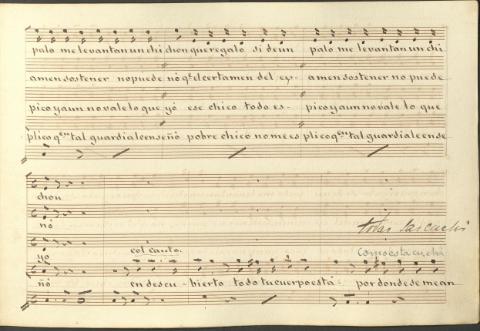 palo me levantan un chi chon que regalo si de un palo me levantan un chi
amen sostener no puede nó qe. el certamen del ex- amen sostener no puede
pico ya un no vale lo que yó ese chico todo es- pico ya un no vale lo que
plico qen. tal guardia le enseñó pobre chico no me es plico qen. tal guardia le ense
chon
nó
todas
yo col canto. Como esta cuchi
ñó en descu- bierto todo tu cuerpo está por donde se mean